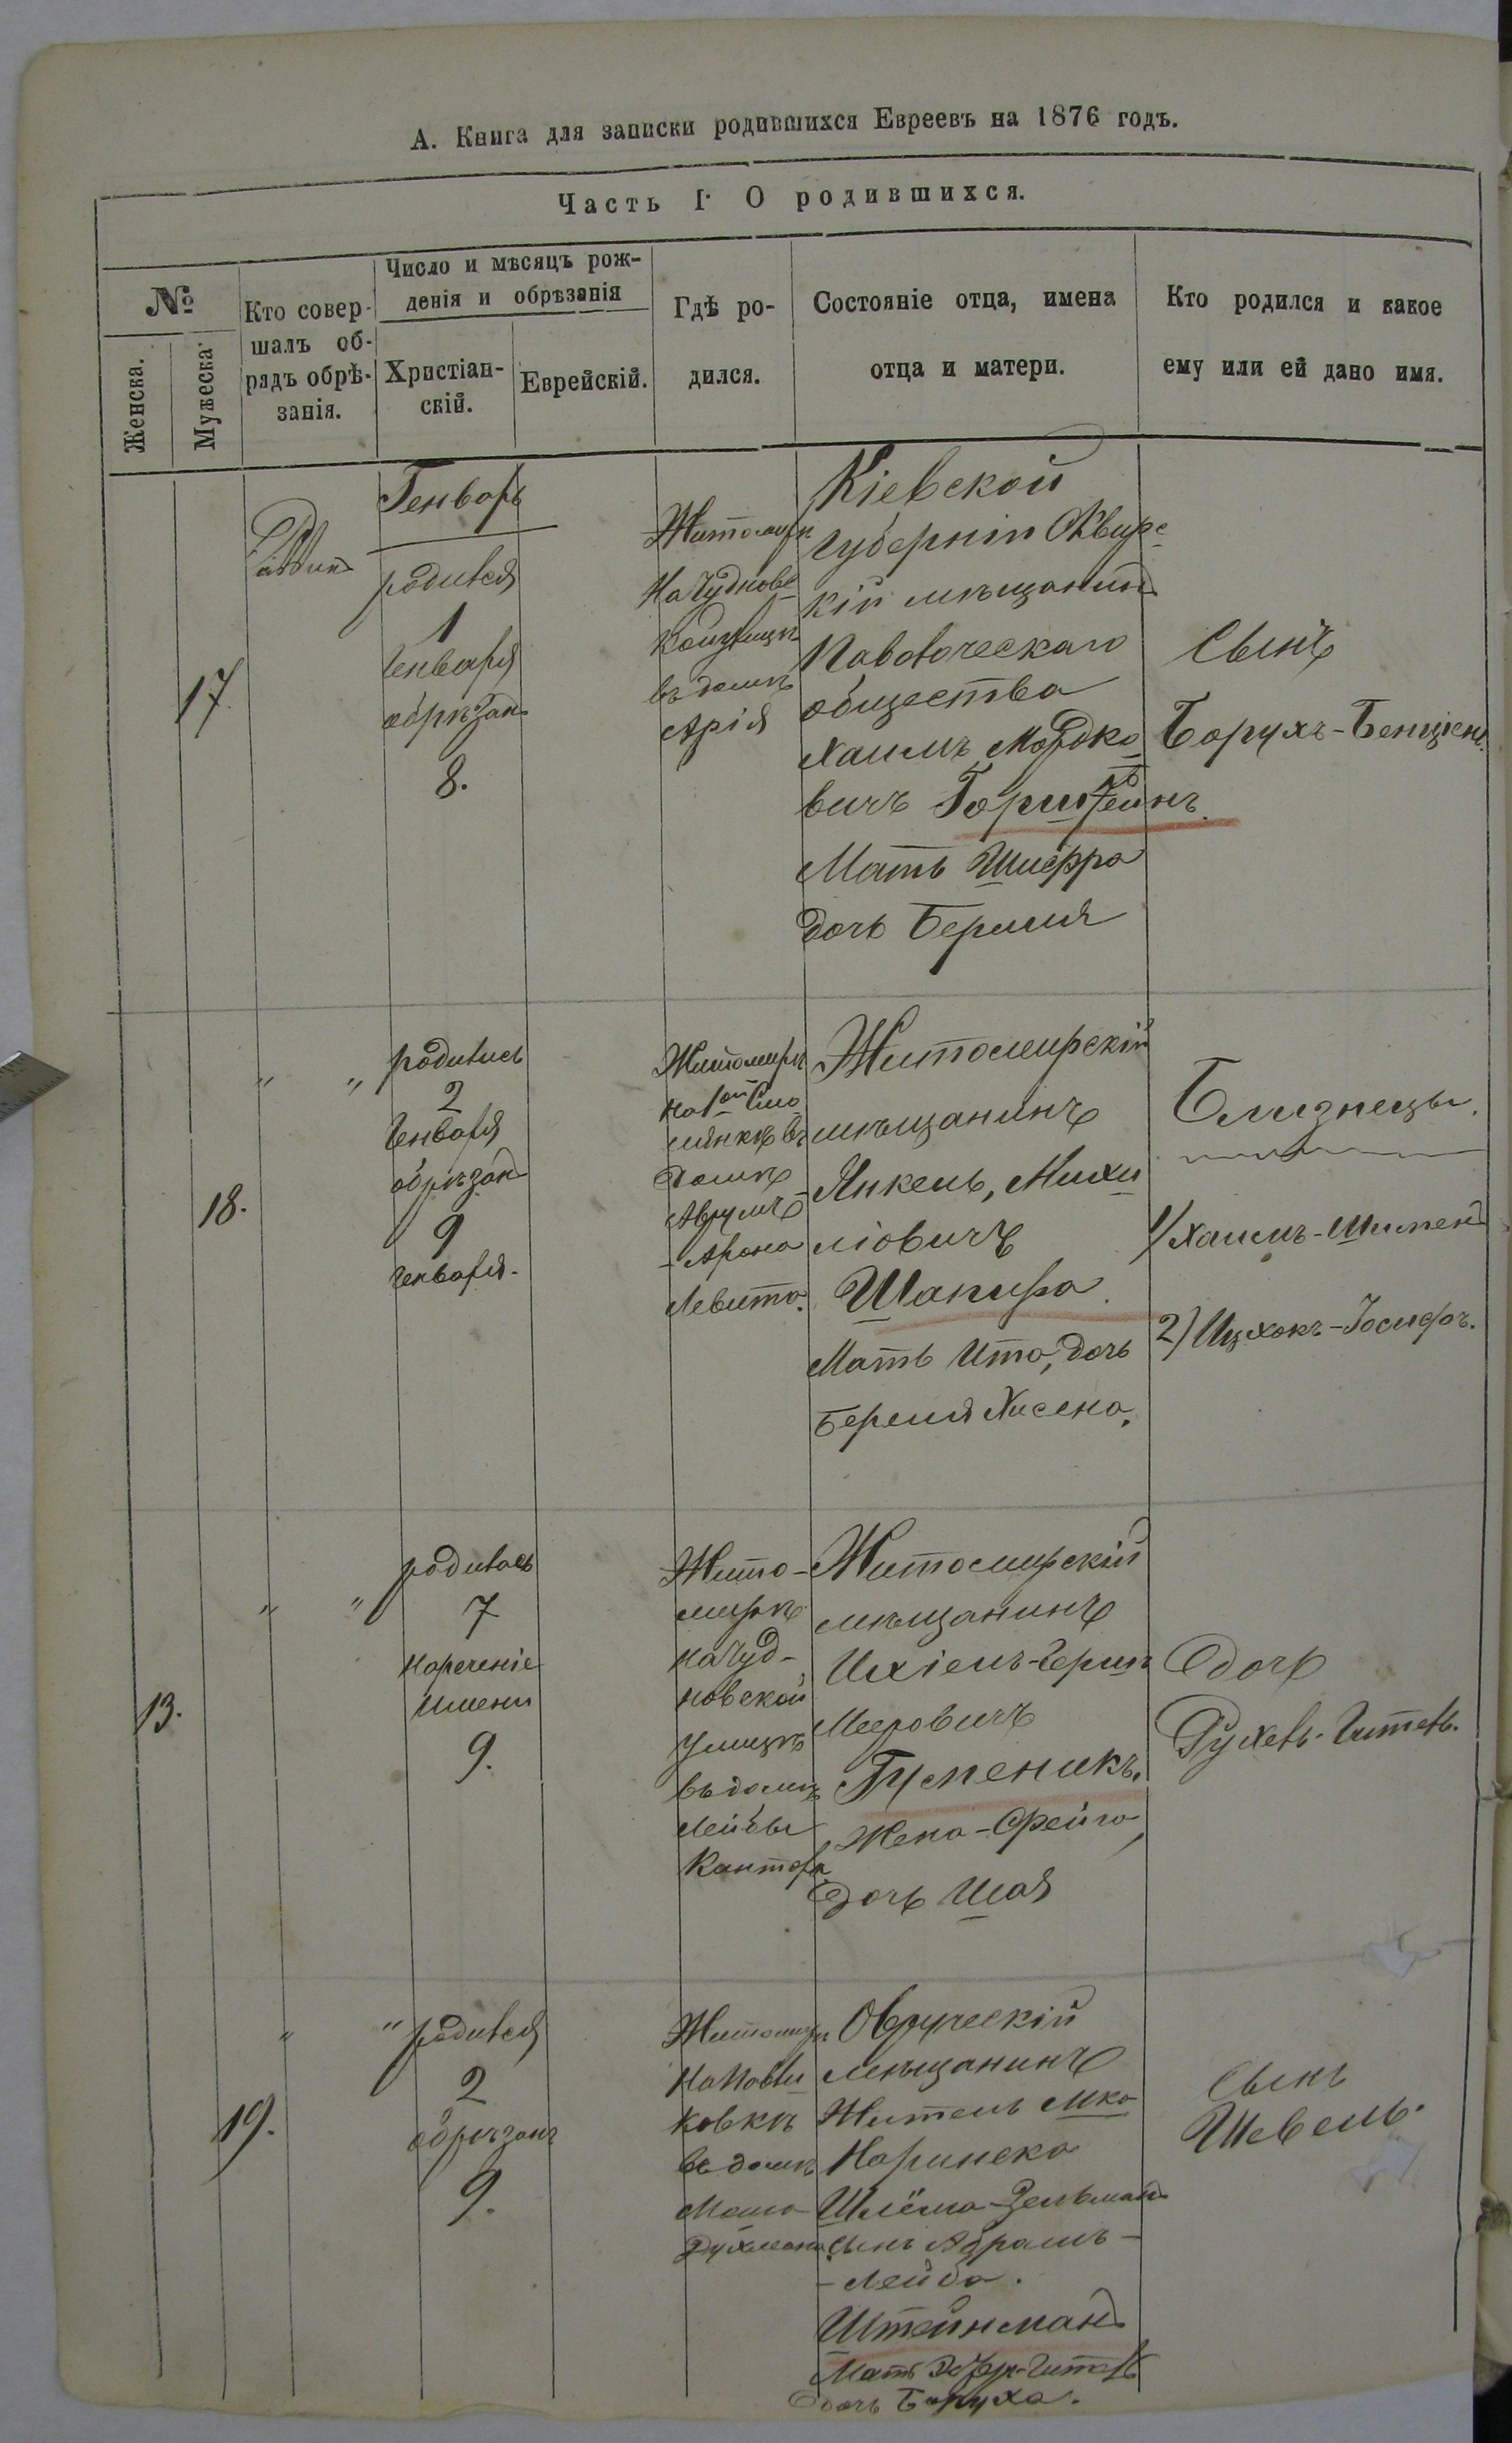 А. Книга для записки родившихся Евреевъ на 1876 годъ.
Часть I. О родившихся.
№
Женска.
Мужеска.
Кто совер-
шалъ об-
рядъ обрѣ-
занія.
Число и мѣсяцъ рож-
денія и обрѣзанія
Христіан-
скій.
Еврейскій.
Гдѣ ро-
дился.
Состояніе отца, имена
отца и матери.
Кто родился и какое
ему или ей дано имя.
17.
Раввинъ
Генварь
родился
1
Генваря
обрѣзанъ
8.
Житомирѣ
На Чудновс
кой улицѣ
въ домѣ
Арія
Кіевской
губерніи Сквирс
кій мѣщанинъ
Паволоческаго
общества
Хаимъ Мордко
вичъ
Мать Шифра
дочь Берина
Сынъ
Борухъ-Бенціенъ.
18.
" "
родились
2
Генваря
обрѣзан
9
Генваря.
Житомирѣ
на 1ой Смо
лянкѣ въ
домѣ
Аврумъ
-Арона
Левита.
Житомирскій
мѣщанинъ
Янкель, Михи
ліовичъ
Шапира.
Мать Ита, дочь
Береля Хисена.
Близнецы.
1) Хаимъ-Шимен
2) Ицхокъ-Іосифъ.
13.
" "
родилась
7
Нареченіе
имени
9.
Жито-
мирѣ
на Чуд-
новской
улицѣ
въ домѣ
Лейбы
Кантора
Житомирскій
мѣщанинъ
Ихіель-Гершъ
Мееровичъ
Гуменикъ.
Жена-Фейга
дочь Шая
дочь
Рухель-Гитель.
19.
" "
родился
2
обрѣзанъ
9.
Житомирѣ
На Павли
ковкѣ
въ домѣ
Овруческій
мѣщанинъ
Житель Мка
Наринска
Шлёма-Зельманъ
сынъ Абрамъ-
-Лейба.
Штейнманъ
Мать Гитель
дочь Боруха.
Сынъ
Шевель.